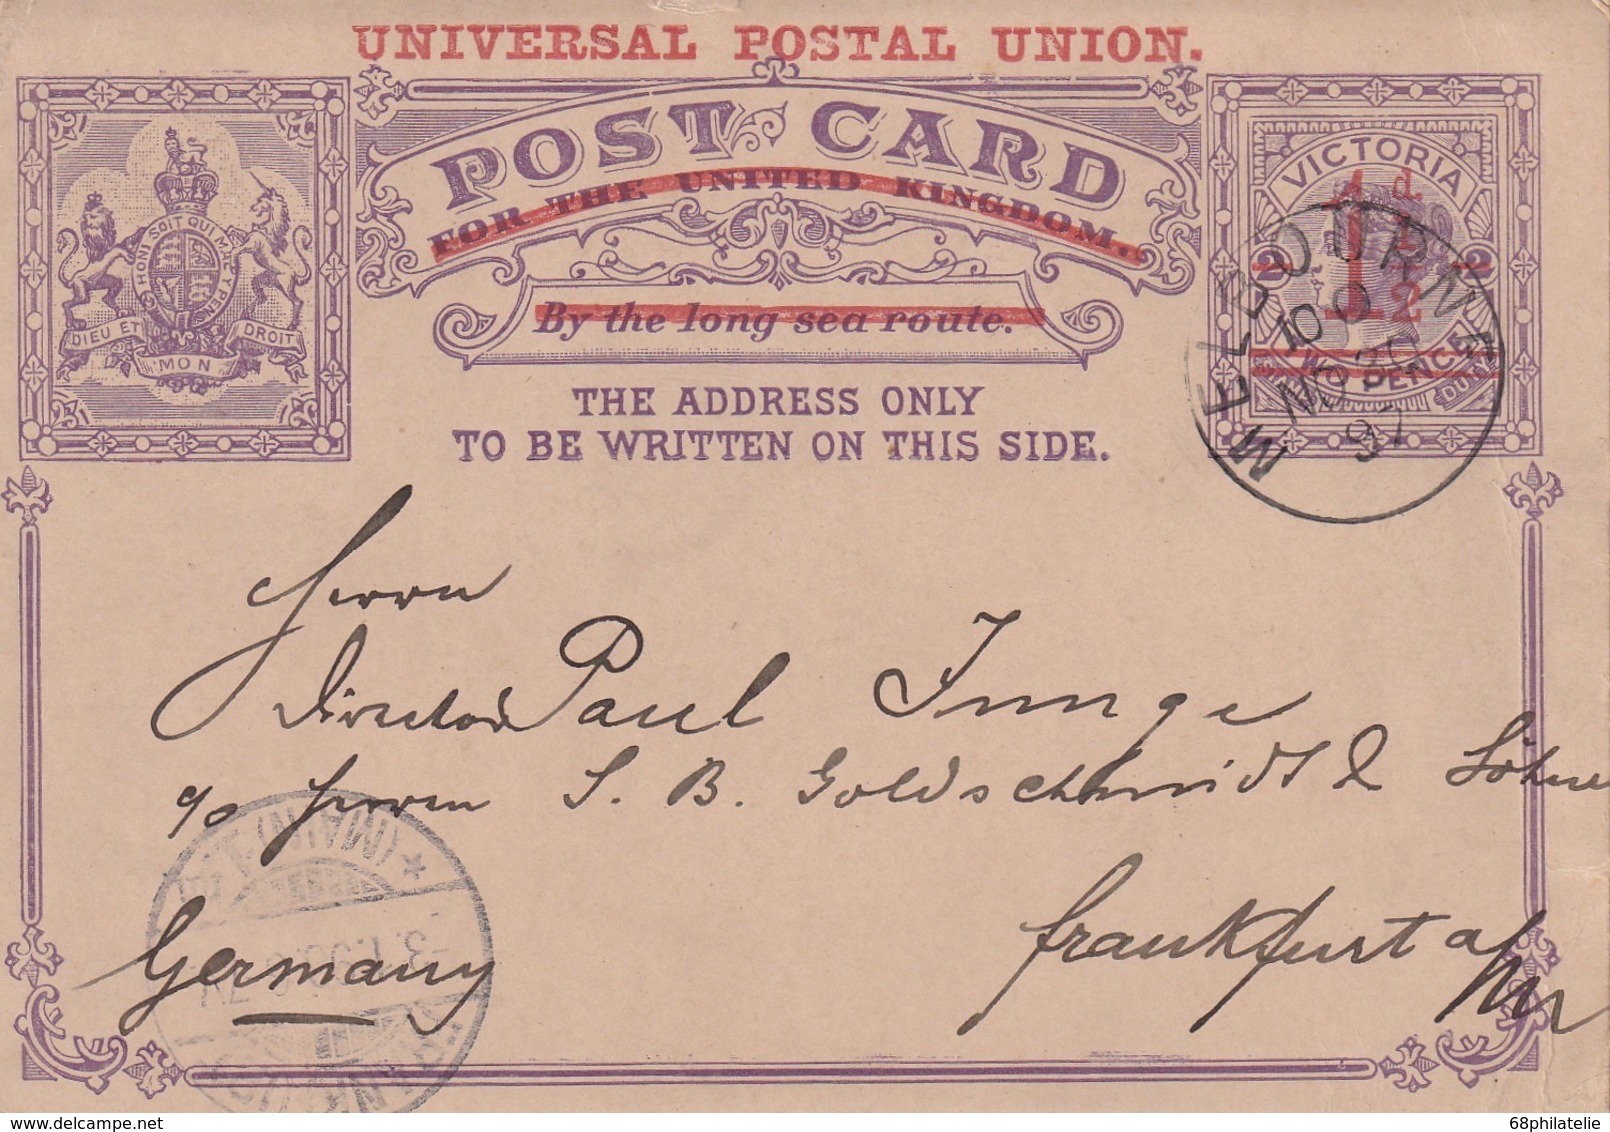 UNIVERSAL POSTAL UNION.
POST CARD
FOR THE UNITED KINGDOM.
By the long sea route.
THE ADDRESS ONLY
TO BE WRITTEN ON THIS SIDE.
HONI SOIT QUI MAL Y PENSE
DIEU ET MON DROIT
VICTORIA
1½d.
2 2
PENCE
DUTY
MELBOURNE
NO
97
Herrn
Director Paul Junge
c/o Herrn S. B. Goldschmidt & Söhne
Frankfurt a/M
Germany
(MAIN)
68philatelie
delcampe.net